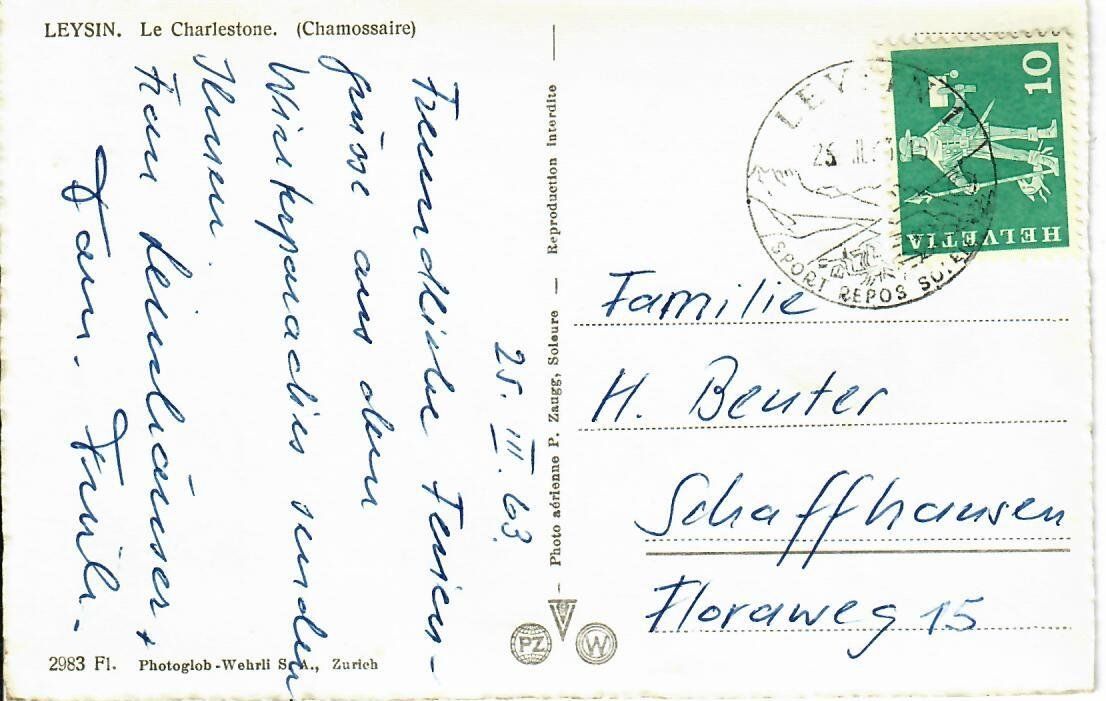 LEYSIN. Le Charlestone. (Chamossaire)
25. III. 63.
Freundliche Ferien-
grüsse aus dem
Winterparadies senden
Ihnen
Fam.
Fam.
Photo aérienne P. Zaugg, Soleure — Reproduction interdite —
10
HELVETIA
LEYSIN
SPORT REPOS SOLEIL
Familie
H. Beuter
Schaffhausen
Floraweg 15
PZ
W
2983 Fl. Photoglob-Wehrli S.A., Zurich